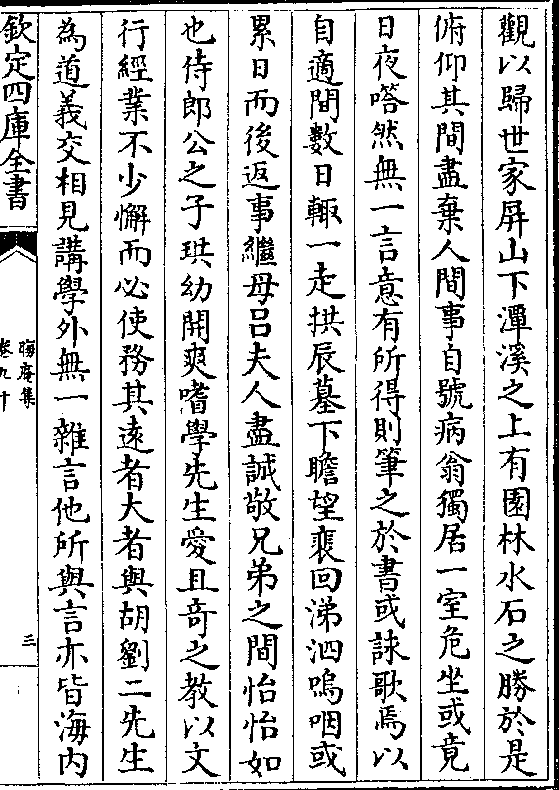 觀以歸世家屏山下潭溪之上有園林水石之勝於是
俯仰其間盡棄人間事自號病翁獨居一室危坐或竟
日夜嗒然無一言意有所得則筆之於書或詠歌焉以
自適間數日輙一走拱辰墓下瞻望裵回涕泗嗚咽或
累日而後返事繼母呂夫人盡誠敬兄弟之間怡怡如
也侍郎公之子珙幼開爽嗜學先生愛且竒之教以文
行經業不少懈而必使務其逺者大者與胡劉二先生
為道義交相見講學外無一雜言他所與言亦皆海内
欽定四庫全書
晦庵集
卷九十
三